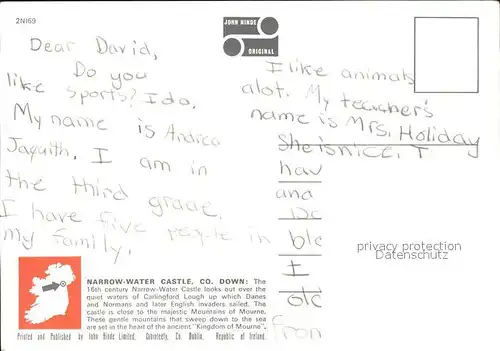 2N169
JOHN HINDE
ORIGINAL
Dear David,
Do you
like sports? I do.
My name is Andrea
Jaquith. I am in
the third grade.
I have five people in
my family.
I like animals
alot. My teacher's
name is Mrs. Holiday
She is nice. I
hav
and
blc
I
olc
from
privacy protection
Datenschutz
NARROW-WATER CASTLE, CO. DOWN: The
16th century Narrow-Water Castle looks out over the
quiet waters of Carlingford Lough up which Danes
and Normans and later English invaders sailed. The
castle is close to the majestic Mountains of Mourne.
These gentle mountains that sweep down to the sea
are set in the heart of the ancient "Kingdom of Mourne".
Printed and Published by John Hinde Limited, Cabinteely, Co. Dublin, Republic of Ireland.